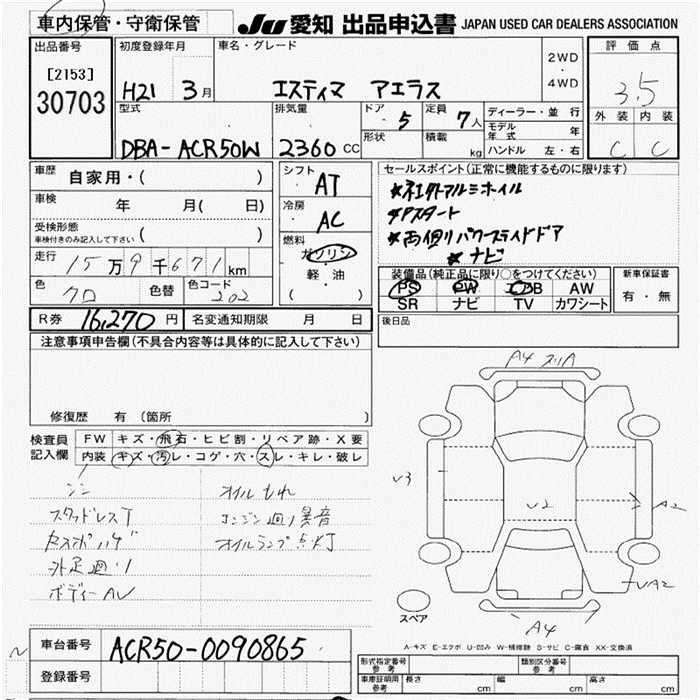 車内保管・守衛保管
JU 愛知 出品申込書 JAPAN USED CAR DEALERS ASSOCIATION
出品番号
[2153]
30703
初度登録年月
H21 3月
車名・グレード
エスティマ アエラス
2WD
・
4WD
評価点
3.5
外装 内装
C C
型式
DBA-ACR50W
排気量
2360 CC
ドア
5
定員
7人
形状
積載
kg
ディーラー・並行
モデル年式 年
ハンドル 左・右
車歴
自家用・( )
車検
年 月( 日)
受検形態
車検付きのみ記入して下さい ( )
走行
15万9千671km
色
クロ
色替
色コード
202
シフト
AT
冷房
AC
燃料
ガソリン
軽・油
( )
セールスポイント(正常に機能するものに限ります)
★社外アルミホイル
★Pスタート
★両側パワースライドドア
★ナビ
装備品(純正品に限り○をつけてください)
PS PW AW
SR ナビ TV カワシート
新車保証書
有・無
R券 16,270円
名変通知期限 月 日
後日品
注意事項申告欄(不具合内容等は具体的に記入して下さい)
修復歴 有(箇所 )
検査員記入欄
FW キズ・飛石・ヒビ割・リペア跡・X要
内装 キズ・汚レ・コゲ・穴・スレ・キレ・破レ
スタッドレスT
外足廻り
オイルもれ
エンジン廻り異音
オイルランプ点灯
A4
V3
U2
A2
A4
スペア
A-キズ E-エクボ U-凹み W-補修跡 S-サビ C-腐食 XX-交換済
車台番号
ACR50-0090865
登録番号
型式指定番号
参考
類別区分番号
参考
車庫証明用
参考
長さ cm
幅 cm
高さ cm